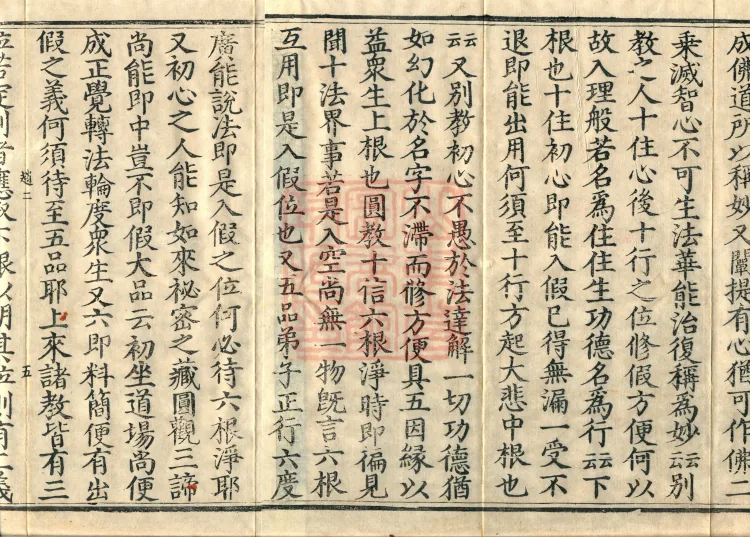 成佛道所以稱妙又闡提有心猶可作佛二
乘滅智心不可生法華能治復稱為妙云云別
教之人十住心後十行之位修假方便何以
故入理般若名為住住生功德名為行云云下
根也十住初心即能入假已得無漏一受不
退即能出用何須至十行方起大悲中根也
云云又別教初心不愚於法達解一切功德猶
如幻化於名字不滯而修方便具五因緣以
益衆生上根也圓教十信六根淨時即徧見
聞十法界事若是入空尚無一物既言六根
互用即是入假位也又五品弟子正行六度
廣能說法即是入假之位何必待六根淨耶
又初心之人能知如來祕密之藏圓觀三諦
尚能即中豈不即假大品云初坐道場尚便
成正覺轉法輪度衆生又六即料簡便有出
假之義何須待至五品耶上來諸教皆有三
趙二 五